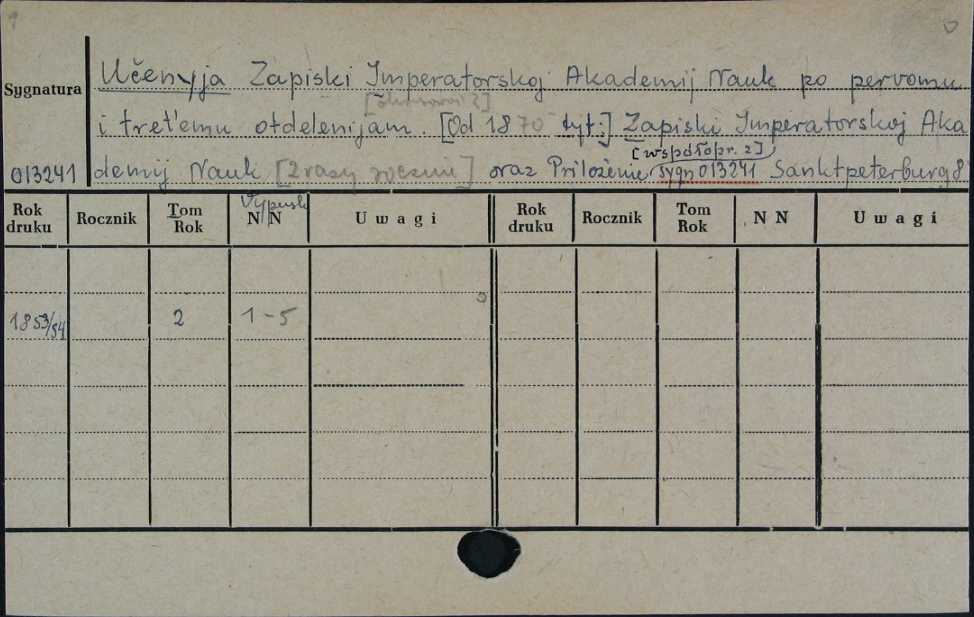 Učenyja Zapiski Imperatorskoj Akademij Nauk po pervomu
Sygnatura
i tret'emu otdelenijam. [Od 1870 tyt:] Zapiski Imperatorskoj Aka
[współopr. z]
013241 demij Nauk [2 razy rocznie] oraz Priloženie sygn 013241 Sanktpeterburg 8°
Rok druku Rocznik Tom Rok Vypusk N N Uwagi Rok druku Rocznik Tom Rok N N Uwagi
1853/54 2 1-5